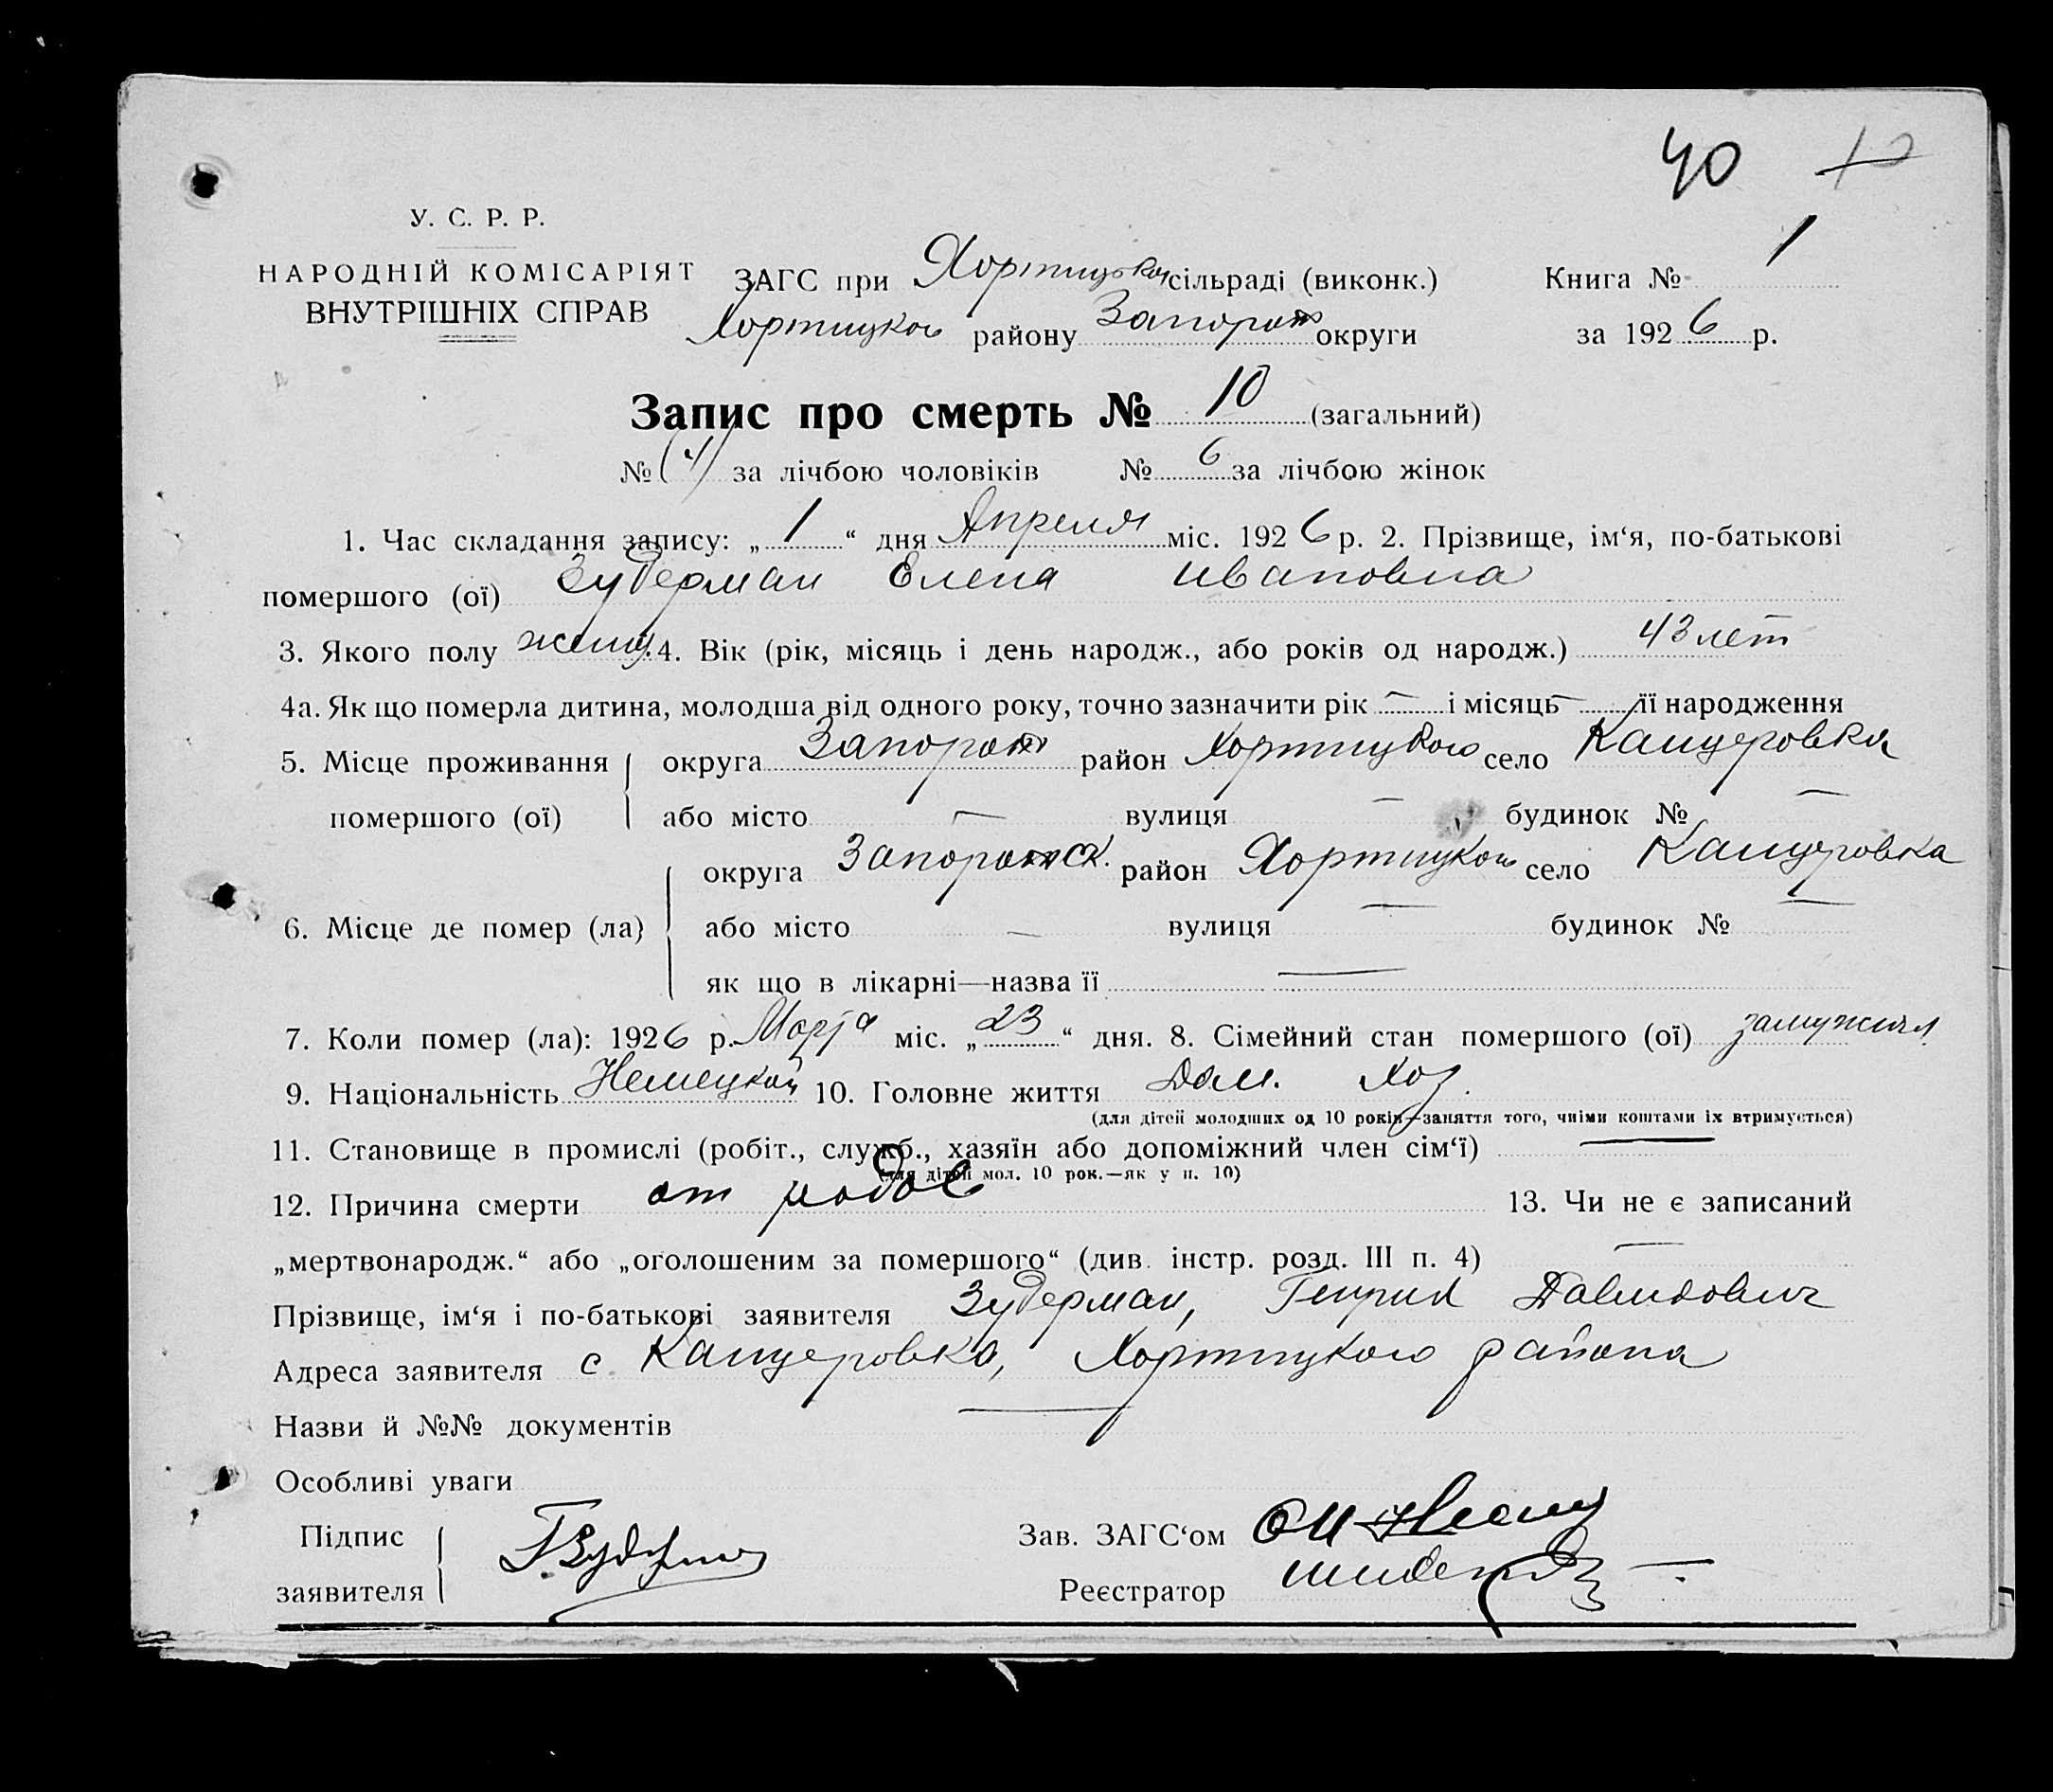 40 10
У. С. Р. Р.
НАРОДНІЙ КОМІСАРІЯТ
ВНУТРІШНІХ СПРАВ
ЗАГС при Хортицькой сільраді (виконк.) Книга № 1
Хортицкого району Запорож округи за 1926 р.
Запис про смерть № 10 (загальний)
№ (4) за лічбою чоловіків № 6 за лічбою жінок
1. Час складання запису: „ 1 “ дня Апреля міс. 1926 р. 2. Прізвище, ім‘я, по-батькові
помершого (ої) Зудерман Елена Ивановна
3. Якого полу женск. 4. Вік (рік, місяць і день народж., або років од народж.) 43 лет
4а. Як що померла дитина, молодша від одного року, точно зазначити рік — і місяць — її народження
5. Місце проживання округа Запорож район Хортицкого село Канцеровка
помершого (ої) або місто — вулиця — будинок № —
округа Запорожск. район Хортицкого село Канцеровка
6. Місце де помер (ла) або місто — вулиця — будинок № —
як що в лікарні—назва її —
7. Коли помер (ла): 1926 р. Марта міс. „ 23 “ дня. 8. Сімейний стан помершого (ої) замужняя
9. Національність Немецкой 10. Головне життя Дом. Хоз.
(для дітей молодших од 10 років—заняття того, чиїми коштами їх втримується)
11. Становище в промислі (робіт., служб., хазяїн або допоміжний член сім‘ї) —
(для дітей мол. 10 рок.—як у п. 10)
12. Причина смерти от родов 13. Чи не є записаний
„мертвонародж.“ або „оголошеним за помершого“ (див. інстр. розд. III п. 4) —
Прізвище, ім‘я і по-батькові заявителя Зудерман, Генрих Давидович
Адреса заявителя с. Канцеровка, Хортицкого района
Назви й №№ документів —
Особливі уваги
Підпис
заявителя Г Зудерман
Зав. ЗАГС‘ом
Реєстратор